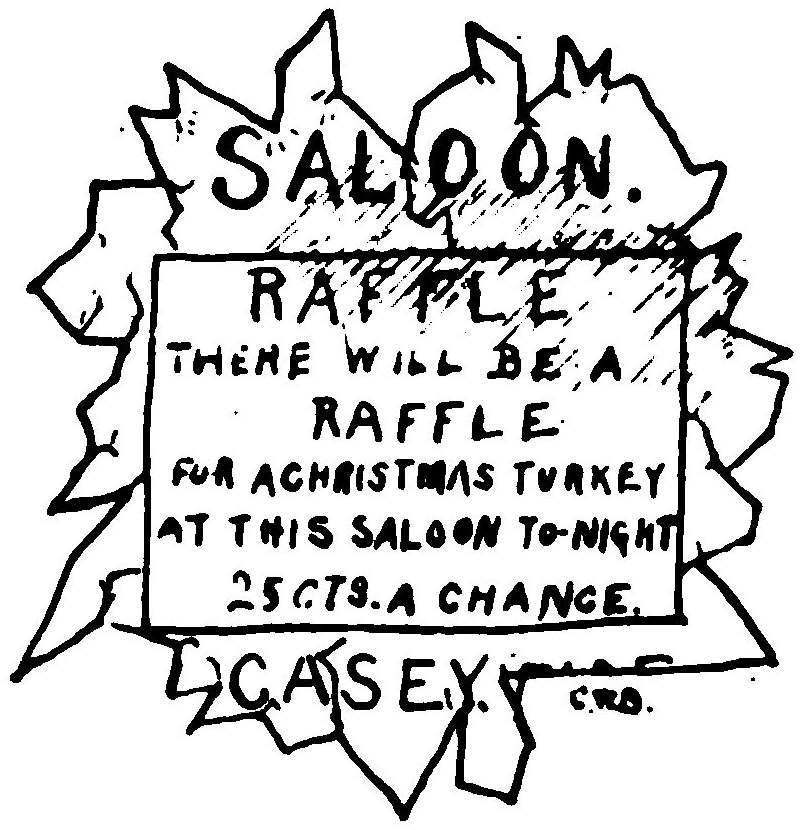 SALOON.
RAFFLE
THERE WILL BE A
RAFFLE
FOR A CHRISTMAS TURKEY
AT THIS SALOON TO-NIGHT
25 CTS. A CHANCE.
CASEY.
C.RD.